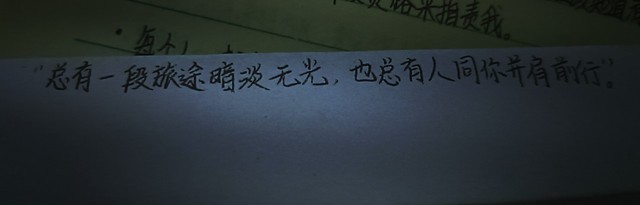 指责我。
每个人
“总有一段旅途暗淡无光，也总有人同你并肩前行”。